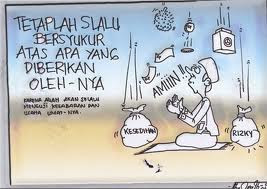 TETAPLAH SLALU
BERSYUKUR
ATAS APA YANG
DIBERIKAN
OLEH-NYA
KARENA ALLAH AKAN SELALU
MENGUJI KESABARAN DAN
AMIIN!!
KESEDIHAN
RIZKY